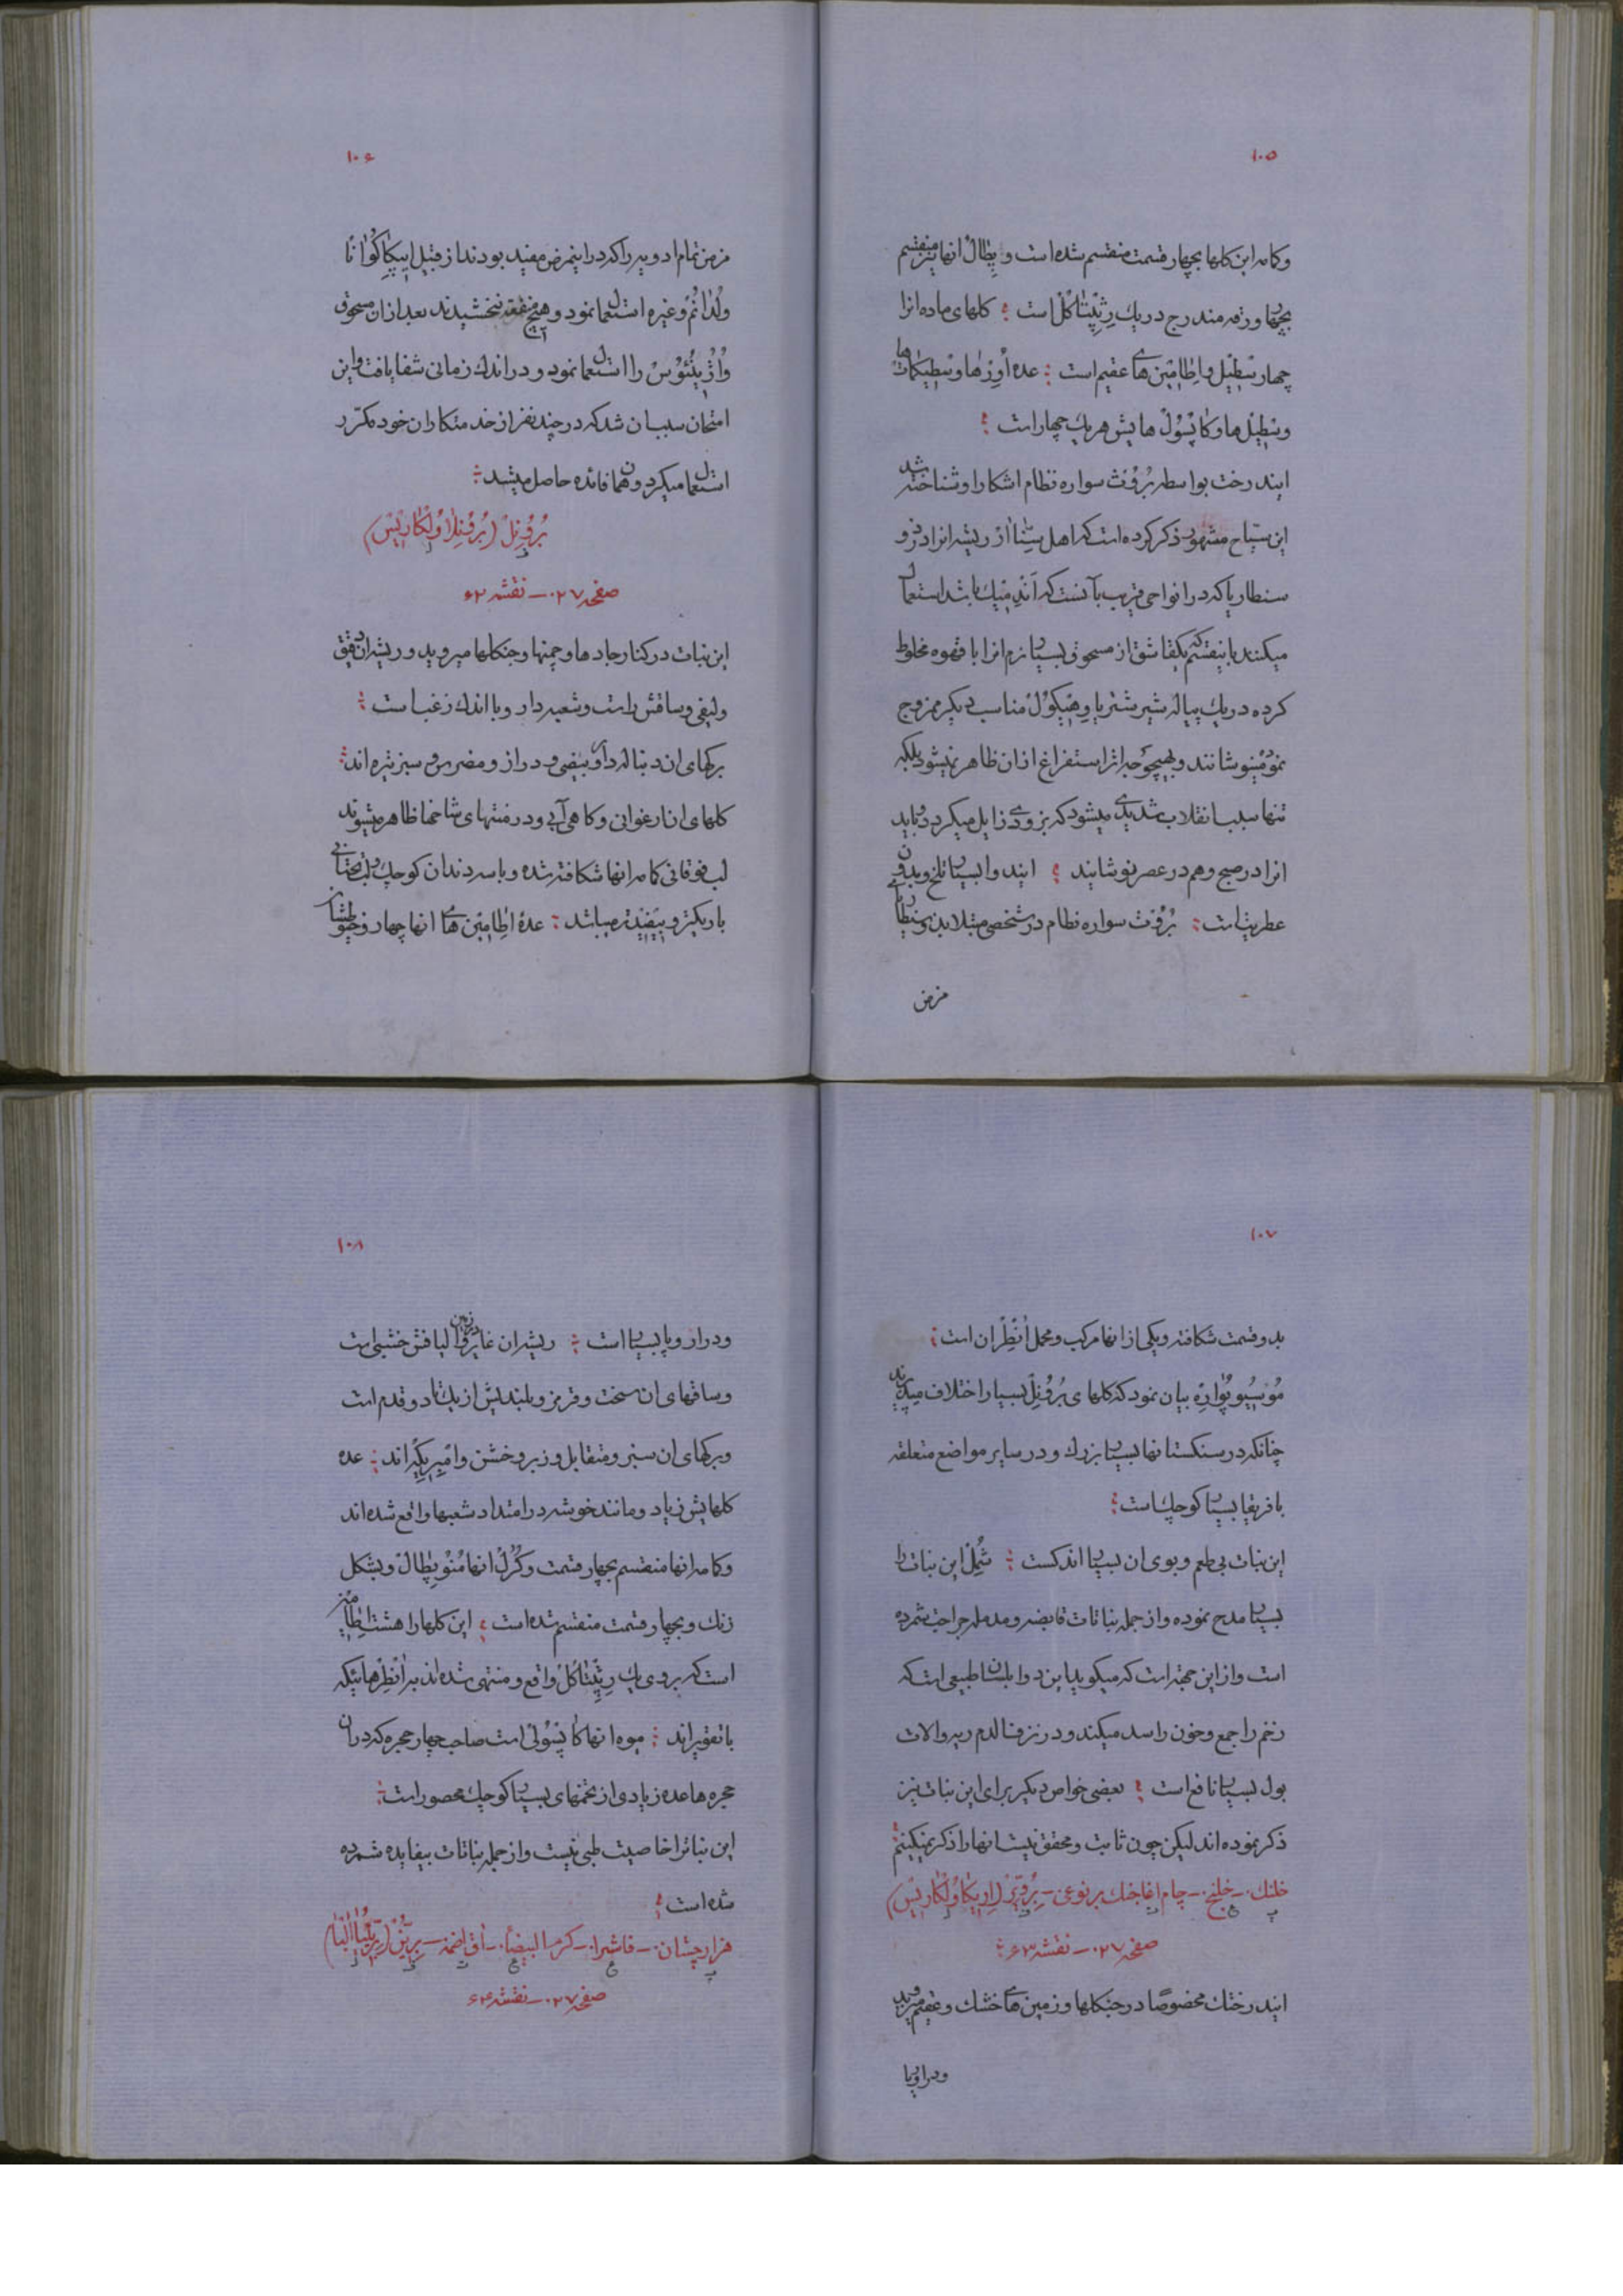 ۱۰۵
وکاسه این کلها بچهار قسمت منقسم شده است و پطال انها نیز منقسم
بچهار ورقه مندرج در یک رثپتاکل است ؛ کلهای ماده انرا
چهار سطیل و اطامین های عقیم است ؛ عده أورها و سطیکمات ها
وسطیل ها و کاپسول هایش هر یک چهار است ؛
ایندرخت بواسطه بروث سواره نظام اشکارا و شناخته شد
این سیاح مشهور ذکر کرده است که اهل ریشه انرا در ذو
سنطاریا که در انواحی قریب بآنست که آندمیک باشد استعمال
میکنند باینقسم که یکقاشق از مسحوق بسیار نرم انرا با قهوه مخلوط
کرده در یک پیاله شیر شتر یا وهیکول مناسب دیکر ممزوج
نموده مینوشانند و بهیچوجه اثر استفراغ ازان ظاهر نمیشود بلکه
تنها سبب انقلاب شدیدی میشود که بزودی زایل میکردد و باید
انرا در صبح و هم در عصر نوشانید ؛ ایندوا بسیار تلخ و بدون
عطریت است ؛ بروث سواره نظام در شخصی مبتلا بذوسنطاریای
مزمن
۱۰۶
مزمن تمام ادویه را که در اینمرض مفید بودند از قبیل ایپکاکوانا
ولدانم و غیره استعمال نمود و هیچ منفعه نبخشیدند بعد ازان مسحوق
را استعمال نمود و در اندک زمانی شفا یافت و این
امتحان سبب ان شد که در چند نفر از خدمتکاران خود مکرر
استعمال میکرد و همان فائده حاصل میشد ؛
برونل (برونلا ولکاریس)
صفحه ۲۷۰ ــ نقشه ۶۲
این نبات در کنار جاده ها و چمنها و جنکلها میروید و ریشه ان دقیق
ولیفی و ساقش راست و شعبه دار و با اندک زغب است ؛
برکهای ان دنباله دار و بیضی و دراز و مضرس و سبز تیره اند ؛
کلهای ان ارغوانی و کاهی آبی و در منتهای شاخها ظاهر میشوند
لب فوقانی کاسه انها شکافته شده و با سه دندان کوچک و لب تحتانی
باریکتر و میباشد ؛ عده اطامین های انها چهار و خیوطشان
۱۰۷
بدو قسمت شکافته و یکی از انها مرکب و محمل أنطران است ؛
موسیو پواره بیان نمود که کلهای برونل بسیار اختلاف میپذیرند
چنانکه در سنکستانها بسیار بزرک و در سایر مواضع متعلقه
بافریقا بسیار کوچک است ؛
این نبات بی طعم و بوی ان بسیار اندکست ؛ شمل این نبات را
بسیار مدح نموده و از جمله نباتات قابضه و مدمله جراحت شمرده
است و از این جهة است که میکوید این دوا بلسان طبیعی است که
زخم را جمع و خون را سد میکند و در نزف الدم ریه و الات
بول بسیار نافع است ؛ بعضی خواص دیکر برای این نبات نیز
ذکر نموده اند لیکن چون ثابت و محقق نیست انها را ذکر نمیکنیم ؛
خلنک ــ خلنج ــ جام اغاجنک بر نوعی ــ برویر (اریکا ولکاریس)
صفحه ۲۷۰ ــ نقشه ۶۳ ؛
ایندرختک مخصوصا در جنکلها و زمین های خشک و عقیم میروید
ودر اروپا
۱۰۸
ودر اروپا بسیار است ؛ ریشه ان غایر در زمین والیافش خشبی است
وساقهای ان سخت و قرمز و بلندیش از یک تا دو قدم است
وبرکهای ان سبز و متقابل و زبر و خشن و امبریکه اند ؛ عده
کلهایش زیاد و مانند خوشه در امتداد شعبها واقع شده اند
وکاسه انها منقسم بچهار قسمت و کرل انها منوپطال و بشکل
زنک و بچهار قسمت منقسم شده است ؛ این کلها را هشت اطامین
است که بر روی یک رثپتاکل واقع و منتهی شده اند به أنطرهائیکه
باتقویراند ؛ میوه انها کاپسولی است صاحب چهار حجره که در ان
حجره ها عده زیادی از تخمهای بسیار کوچک محصور است ؛
این نبات را خاصیت طبی نیست و از جمله نباتات بیفایده شمرده
شده است ؛
هزارچشان ــ فاشرا ــ کرمة البیضاء ــ اق اصمه ــ بریون (بریونیا البا)
صفحه ۲۷۰ ــ نقشه ۶۴